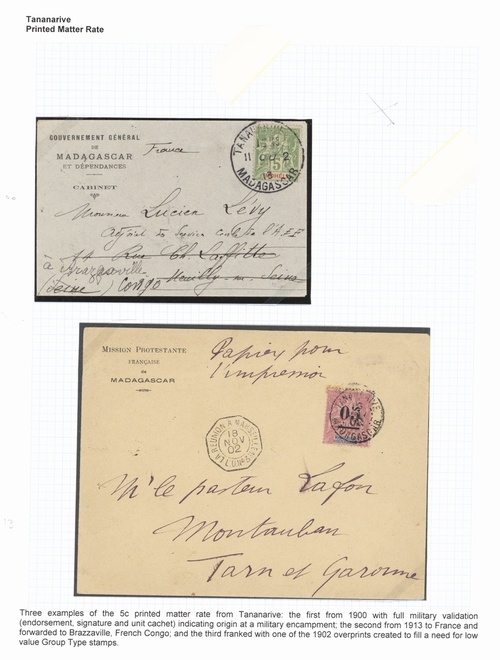 Tananarive
Printed Matter Rate
GOUVERNEMENT GÉNÉRAL
DE
MADAGASCAR
ET DÉPENDANCES
CABINET
France
TANANARIVE
MADAGASCAR
Monsieur Lucien Lévy
44 Rue Ch. Laffitte
à Brazzaville Neuilly sur Seine
(Seine) Congo
MISSION PROTESTANTE
FRANÇAISE
de
MADAGASCAR
Papiers pour
l'impression
LA REUNION A MARSEILLE
18
NOV
02
Mr le pasteur Lafon
Montauban
Tarn et Garonne
Three examples of the 5c printed matter rate from Tananarive: the first from 1900 with full military validation
(endorsement, signature and unit cachet) indicating origin at a military encampment; the second from 1913 to France and
forwarded to Brazzaville, French Congo; and the third franked with one of the 1902 overprints created to fill a need for low
value Group Type stamps.